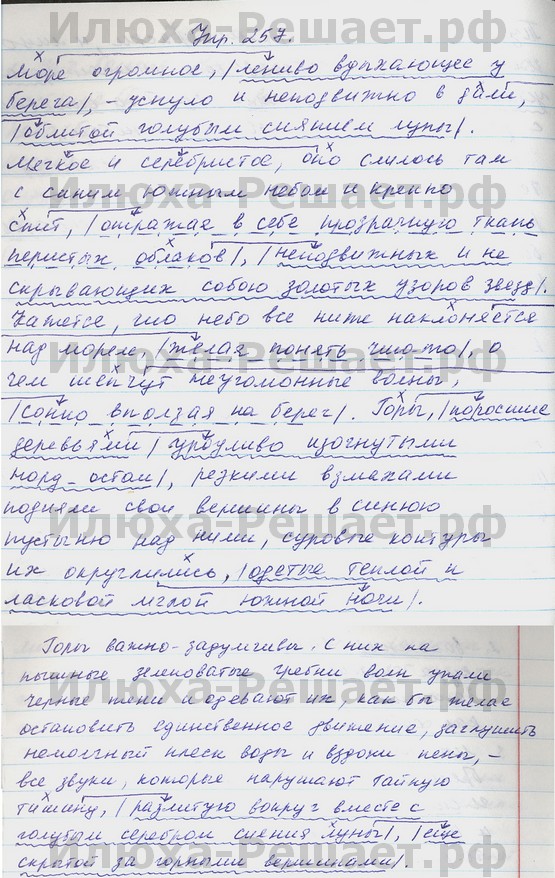 Илюха-Решает.рф
Упр. 257.
Море огромное, /лениво вздыхающее у
берега/, - уснуло и неподвижно в дали,
/облитой голубым сиянием луны/.
Мягкое и серебристое, оно слилось там
с синим южным небом и крепко
Илюха-Решает.рф
спит, /отражая в себе прозрачную ткань
перистых облаков/, /неподвижных и не
скрывающих собою золотых узоров звезд/.
Кажется, что небо все ниже наклоняется
над морем, /желая понять что-то/, о
Илюха-Решает.рф
чем шепчут неугомонные волны,
/сонно вползая на берег/. Горы, /поросшие
деревьями/ уродливо изогнутыми
норд-остом/, резкими взмахами
подняли свои вершины в синюю
Илюха-Решает.рф
пустыню над ними, суровые контуры
их округлились, /одетые теплой и
ласковой мглой южной ночи/.
Горы важно-задумчивы. С них на
пышные зеленоватые гребни волн упали
Илюха-Решает.рф
черные тени и одевают их, как бы желая
остановить единственное движение, заглушить
немолчный плеск воды и вздохи пены, -
все звуки, которые нарушают тайную
тишину, /разлитую вокруг вместе с
голубым серебром сияния луны/, /еще
Илюха-Решает.рф
скрытой за горными вершинами/.